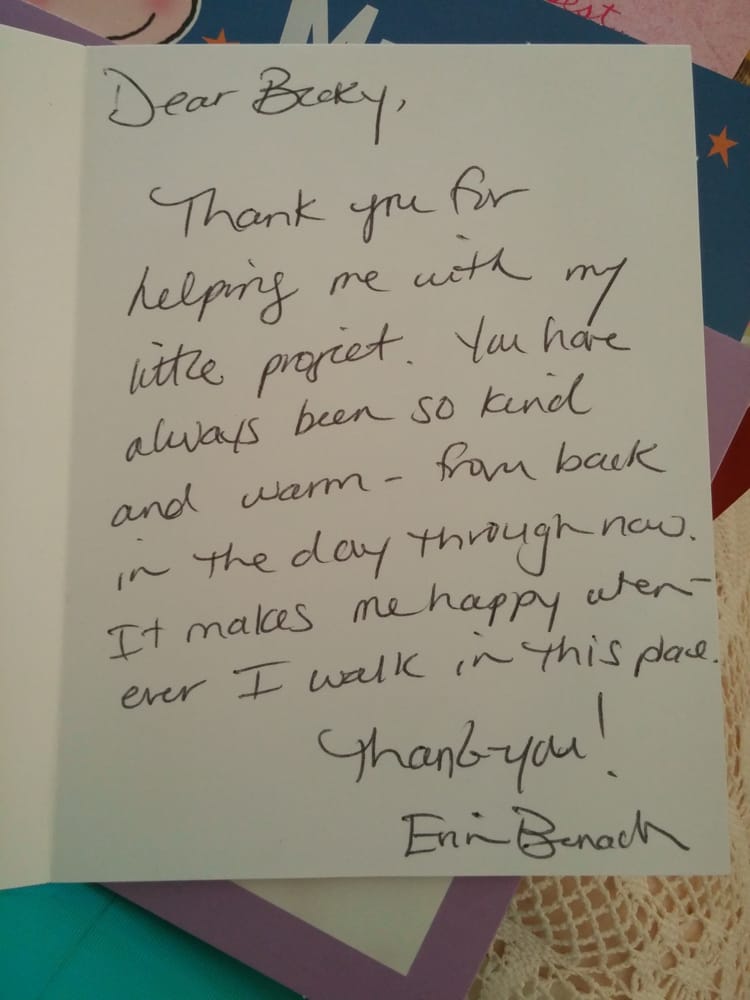 est
M
Dear Becky,
Thank you for
helping me with my
little project. You have
always been so kind
and warm - from back
in the day through now.
It makes me happy when-
ever I walk in this place.
Thank-you!
Erin Benach